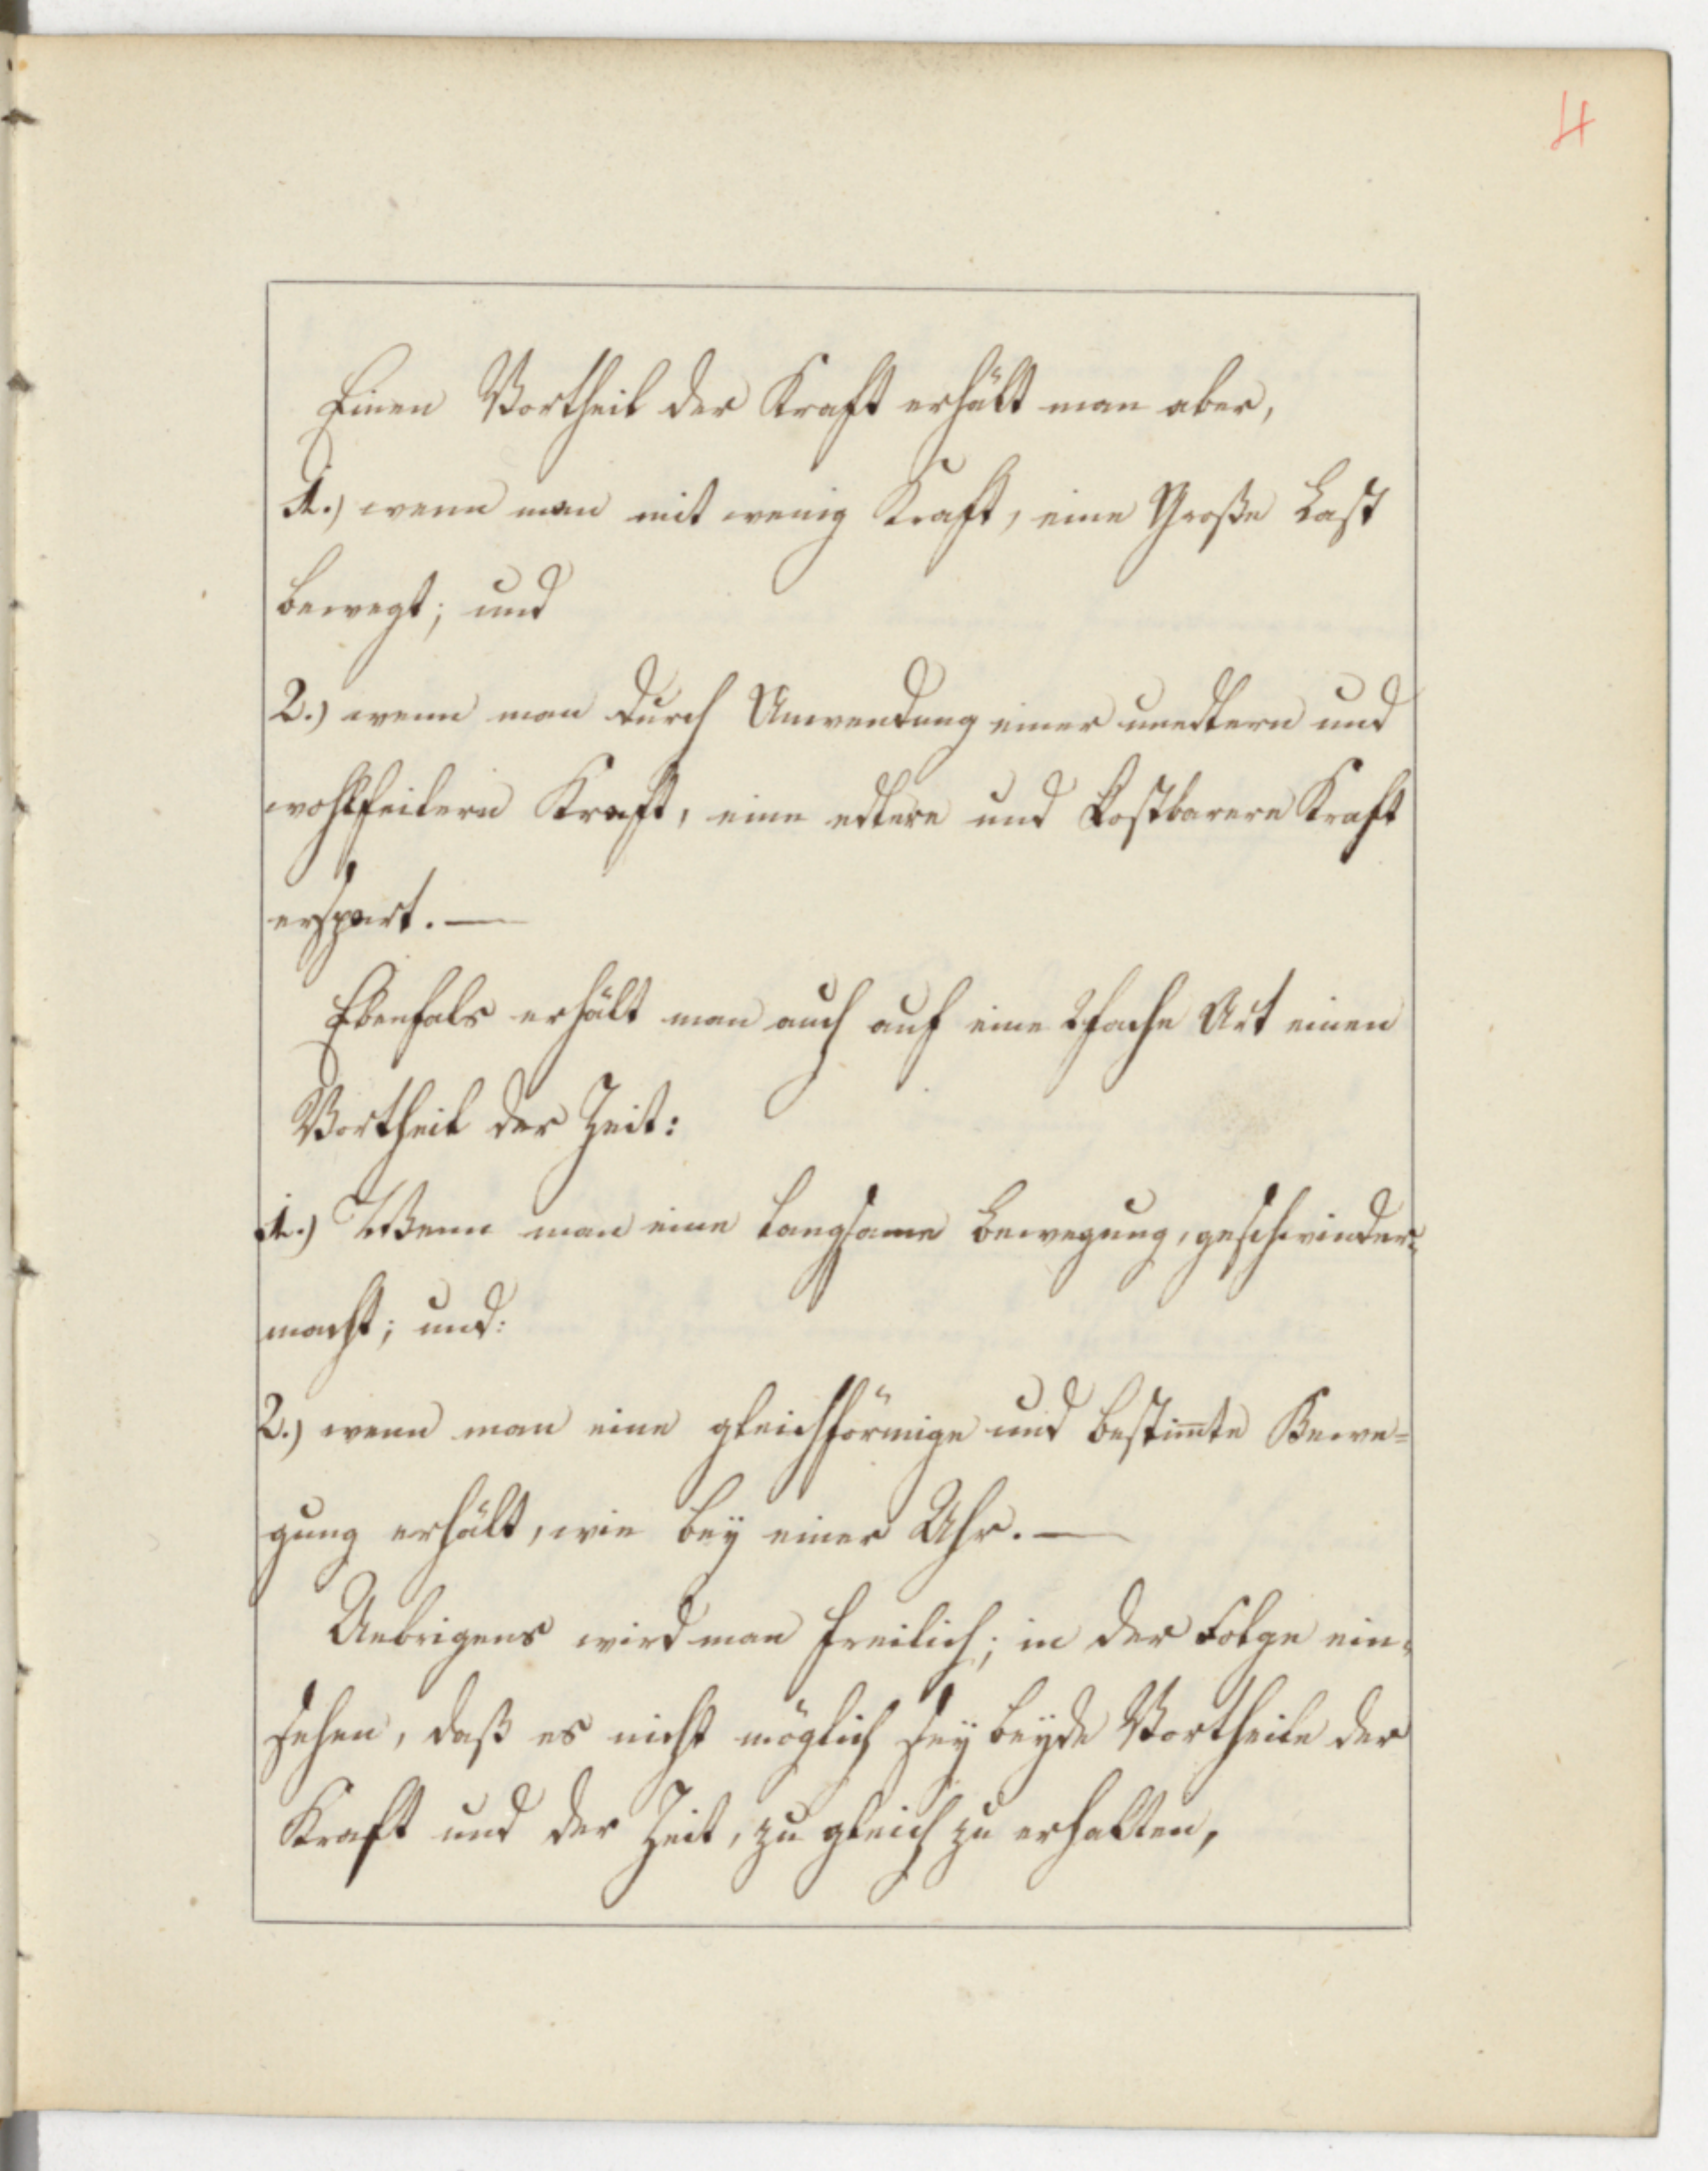 4
Einen Vortheil der Kraft erhält man aber,
1.) wenn man mit wenig Kraft, eine Große Last
bewegt; und
2.) wenn man durch Anwendung einer unedlern und
wohlfeilern Kraft, eine edlere und kostbarere Kraft
erspart. —
Ebenfals erhält man auch auf eine 2fache Art einen
Vortheil der Zeit:
1.) Wenn man eine langsame Bewegung, geschwinder
macht; und:
2.) wenn man eine gleichförmige und bestim̅te Bewe=
gung erhält, wie bey einer Uhr. —
Uebrigens wird man freilich; in der Folge ein=
sehen, daß es nicht möglich sey beyde Vortheile der
Kraft und der Zeit, zu gleich zu erhalten,